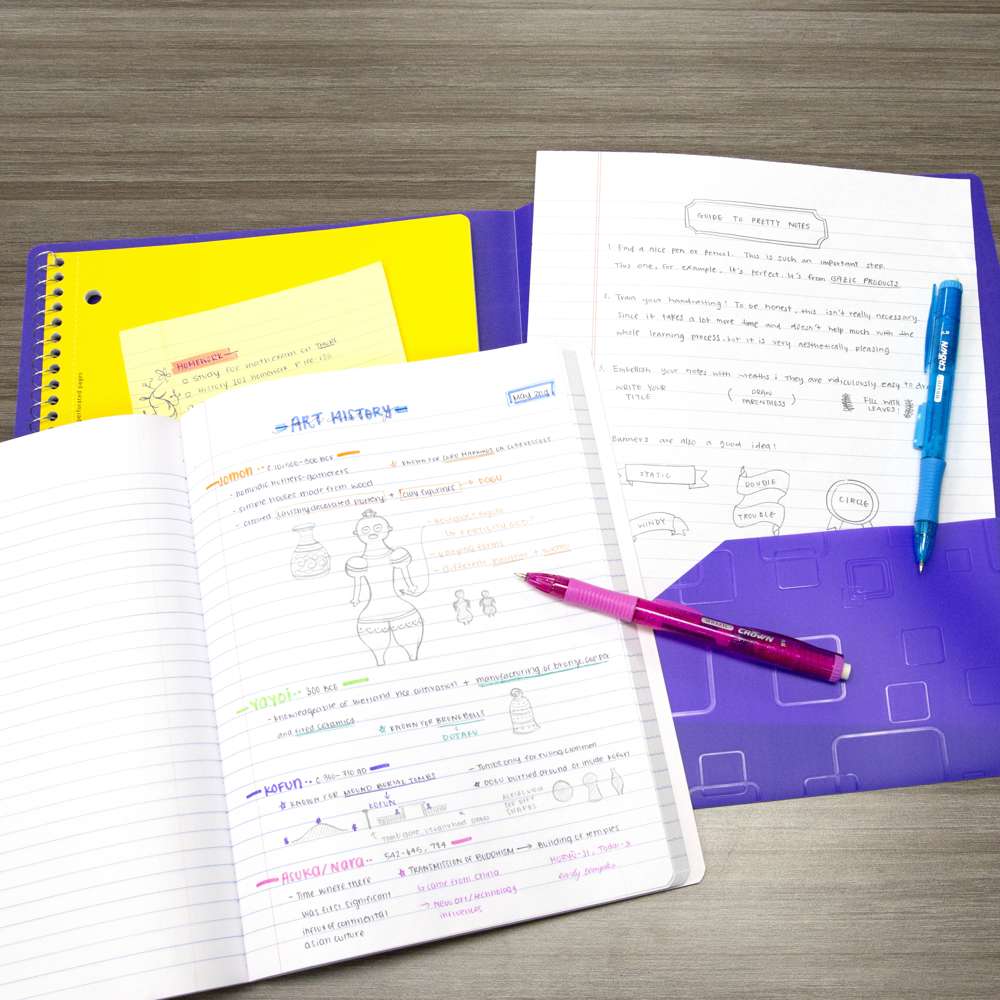 perforated pages
HOMEWORK
a study for math exam on
history 101 homework
GUIDE TO PRETTY NOTES
1. Find a nice pen or pencil. This is such an important step.
This one, for example, it's perfect. It's from GAZIC PRODUCTS
2. Train your handwriting! To be honest, this isn't really necessary
since it takes a lot more time and doesn't help much with the
whole learning process, but it is very aesthetically pleasing.
3. Embelish your notes with wreaths! They are ridiculously easy to
WRITE YOUR TITLE
( DRAW PARENTHESS )
FILL WITH LEAVES!
Banners are also a good idea!
STATIC
DOUBLE
TROUBLE
CIRCLE
WINDY
CROWN
CROWN
ART HISTORY
MAY 2nd
JOMON
- nomadic hunters-gatherers
- simple houses made from wood
- created pottery + DOGU
* KNOWN FOR CORD MARKING ON
- different +
YAYOI -- 300 BCE
- knowledgeable of wetland rice cultivation + manufacturing of bronze,
and fired ceramics
* KNOWN FOR BRONZE BELLS
DOTAKU
KOFUN -- 710 AD
* KNOWN FOR MOUND BURIAL TOMBS
KOFUN
- Tombs only for ruling
* DOGU buried around or inside KOFUN
SHAPES
ASUKA/NARA -- 542-645, 794
- Time where there
was first significant
influx of continental
asian culture
* TRANSMISSION OF BUDDHISM → Building of temples
came from China
→ New art/technology
influences
early temples